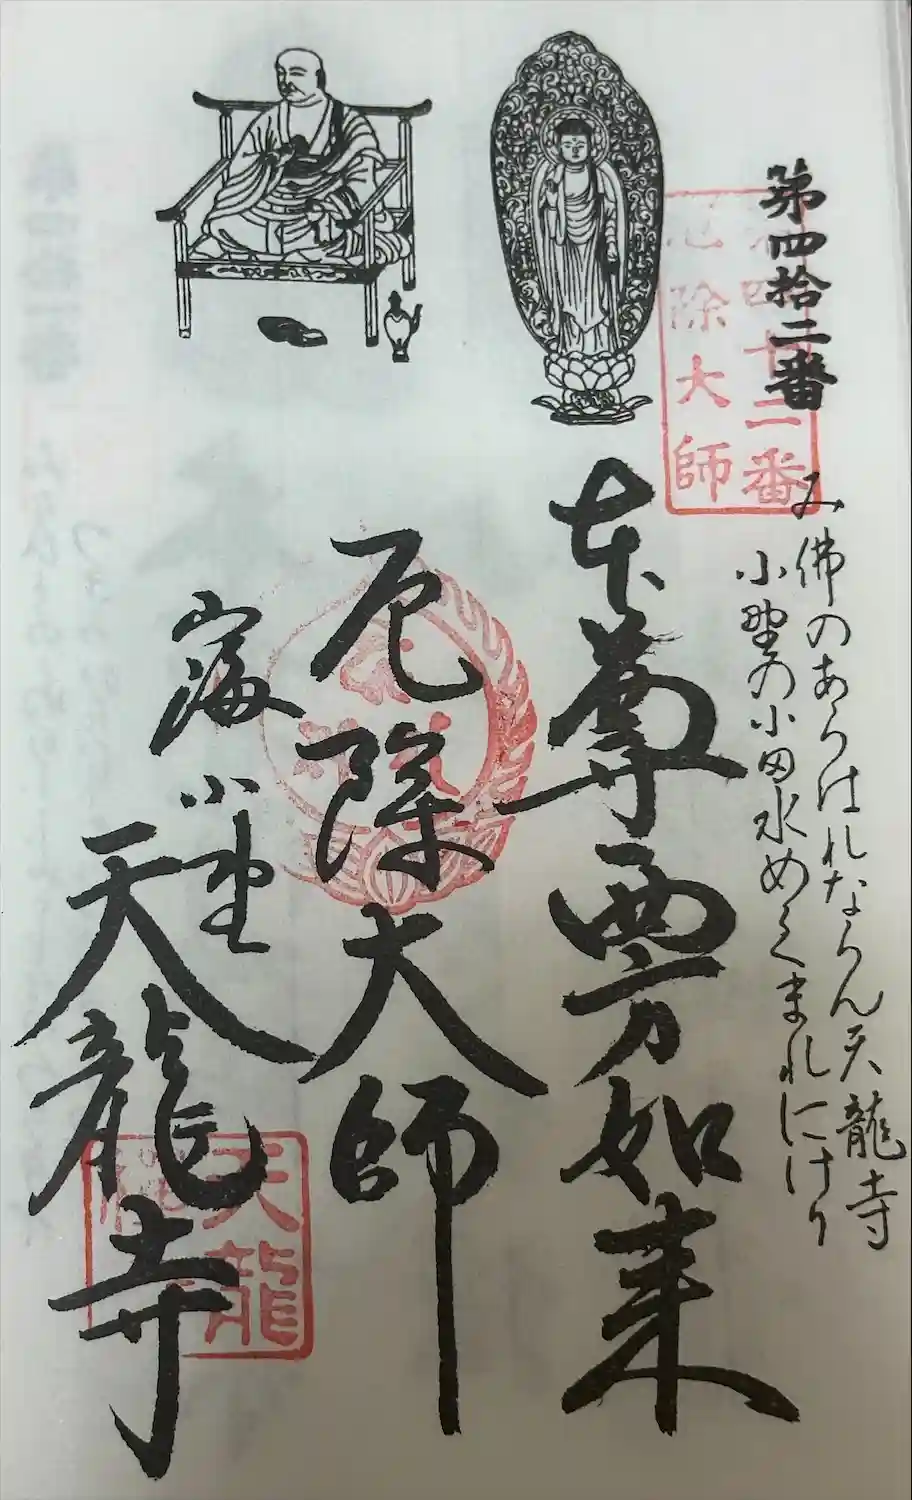 第四拾二番
第四十二番
厄除大師
み佛のあらはれならん天龍寺
小野の小田水めくまれにけり
本尊 西方如来
厄除大師
小野
天龍寺
天龍